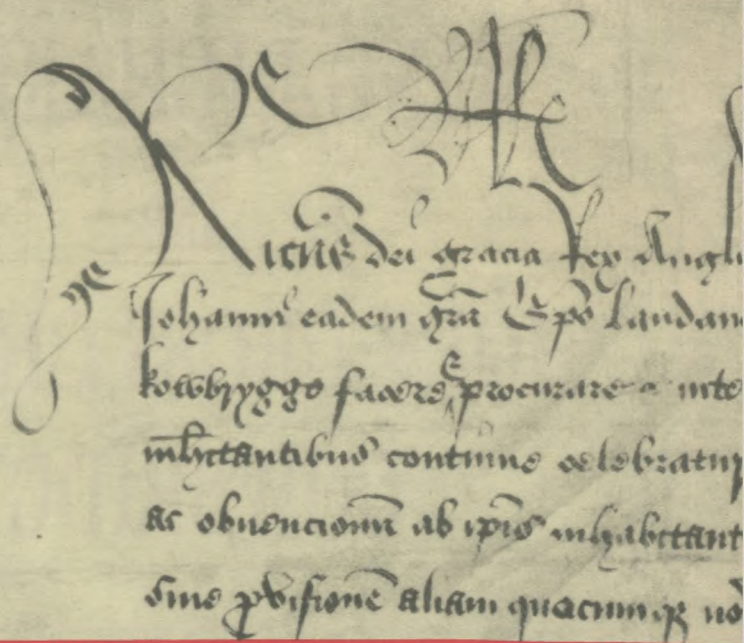 Ricũs dei gracia Rex Angli
Johanni eadem grã Ep̃o Landau
kowbrygge facere & procurare inte
inhitantibus continue celebratur
ac obuencionũ ab ip̃is inhabitant
siue p̱visionẽ aliam quacumqꝫ